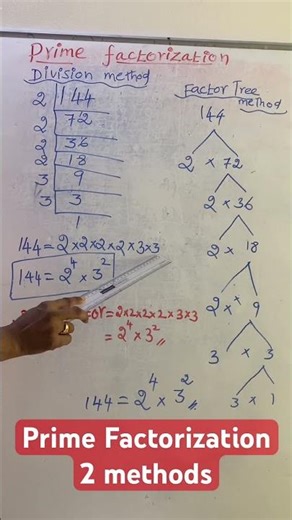 Prime factorization
Division method
2 144
2 72
2 36
2 18
3 9
3 3
1
144 = 2×2×2×2×3×3
144 = 2⁴ × 3²
or = 2×2×2×2×3×3
= 2⁴ × 3²
Factor Tree
method
144
2 × 72
2 × 36
2 × 18
2 × 9
3 × 3
3 × 1
144 = 2⁴ × 3²
Prime Factorization
2 methods